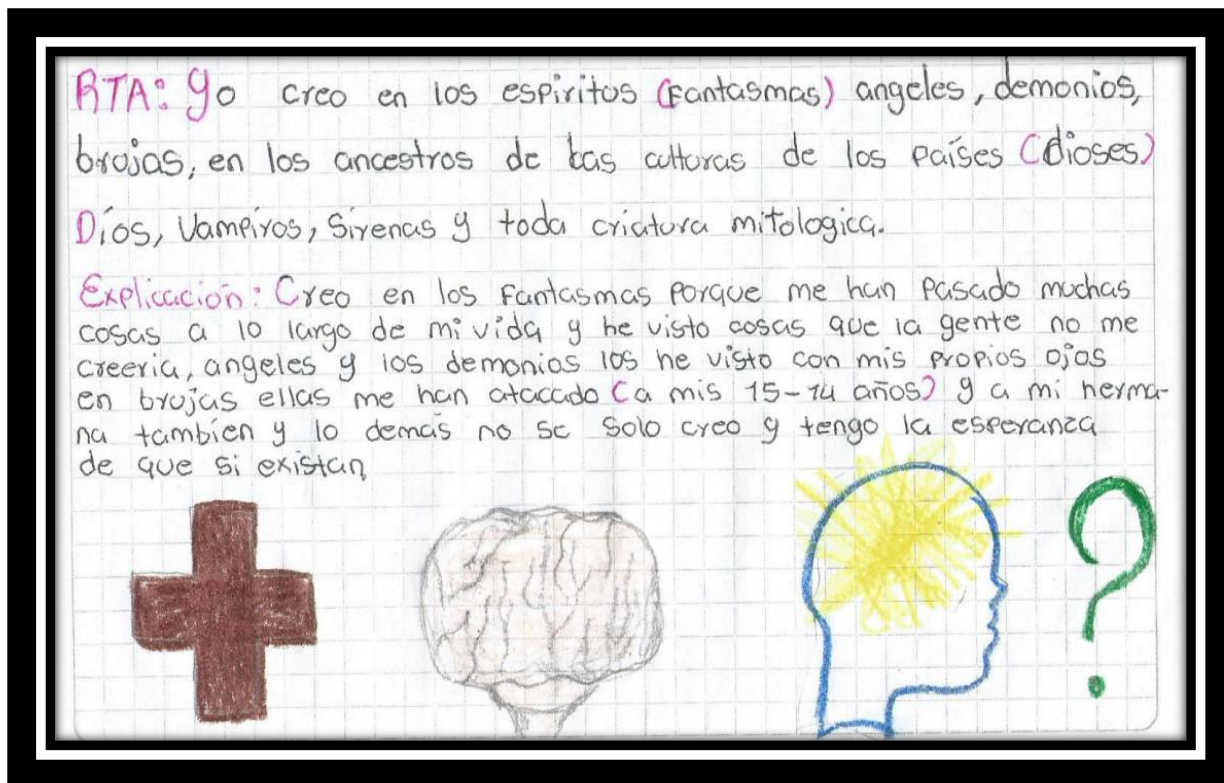 RTA: Yo creo en los espiritos (Fantasmas) angeles, demonios,
brujas, en los ancestros de las culturas de los países (dioses)
Díos, Vampiros, Sirenas y toda criatura mitologica.
Explicación: Creo en los Fantasmas porque me han pasado muchas
cosas a lo largo de mi vida y he visto cosas que la gente no me
creeria, angeles y los demonios los he visto con mis propios ojos
en brujas ellas me han atacado (a mis 15-14 años) y a mi herma-
na tambien y lo demás no se solo creo y tengo la esperanza
de que si existan,
?